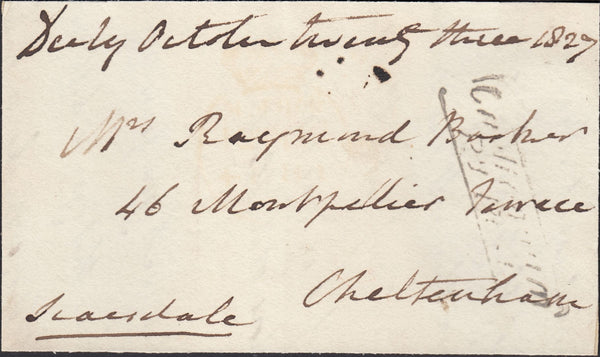 Derby October twenty three 1827
Mrs Raymond Barker
46 Montpellier Terrace
Cheltenham
Scarsdale